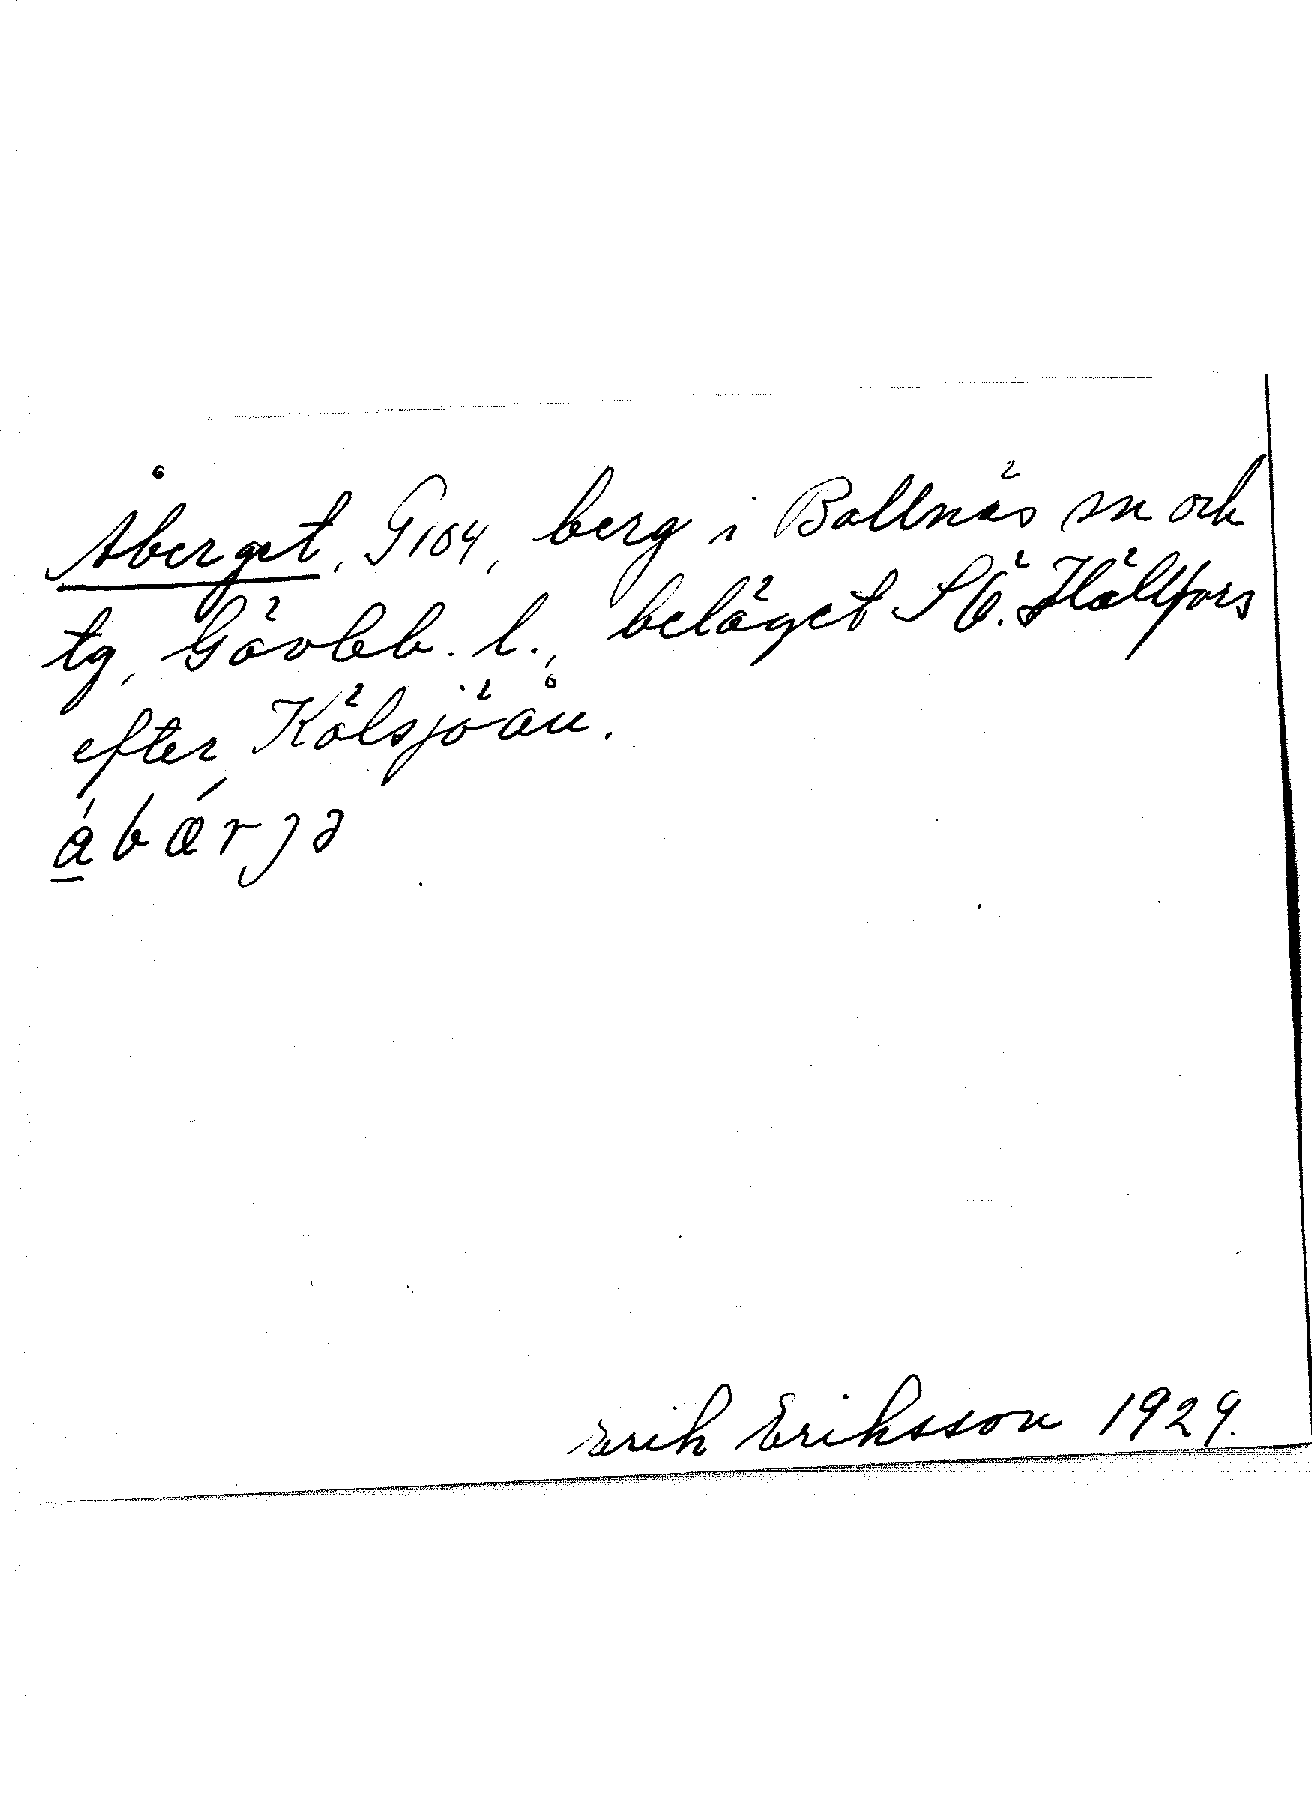 Åberget, G104, berg i Bollnäs sn och
tg, Gävleb. l., beläget S Ö. Hällfors
efter Kölsjöån.
ábǽrjə
Erik Eriksson 1929.